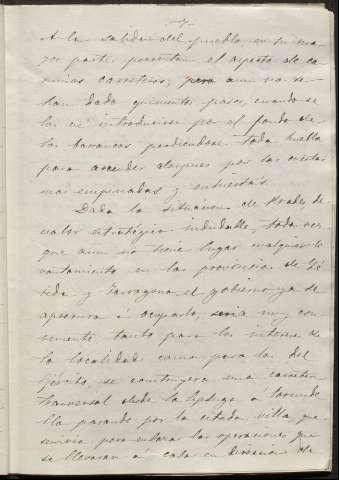 A la salida del pueblo en su ma-
yor parte, presentan el aspecto de ca-
minos carreteros; pero aun no se
han dado quinientos pasos, cuando se
les ve introducirse por el fondo de
los barrancos perdiendose toda huella
para ascender despues por las cuestas
mas empinadas y enhiestas.
Dada la situacion de Prades de
valor estrategico indudable, toda vez
que aun no tiene lugar cualquier le
vantamiento en las provincias de Lé
rida y Tarragona el gobierno ya se
apresura á ocuparlo, seria muy con-
veniente tanto para los intereses de
la localidad como para los del
Ejército, se construyera una carretera
transversal desde la Espluga á Cornude
lla pasando por la citada villa que
serviria para enlazar las operaciones que
se llevaran á cabo en de